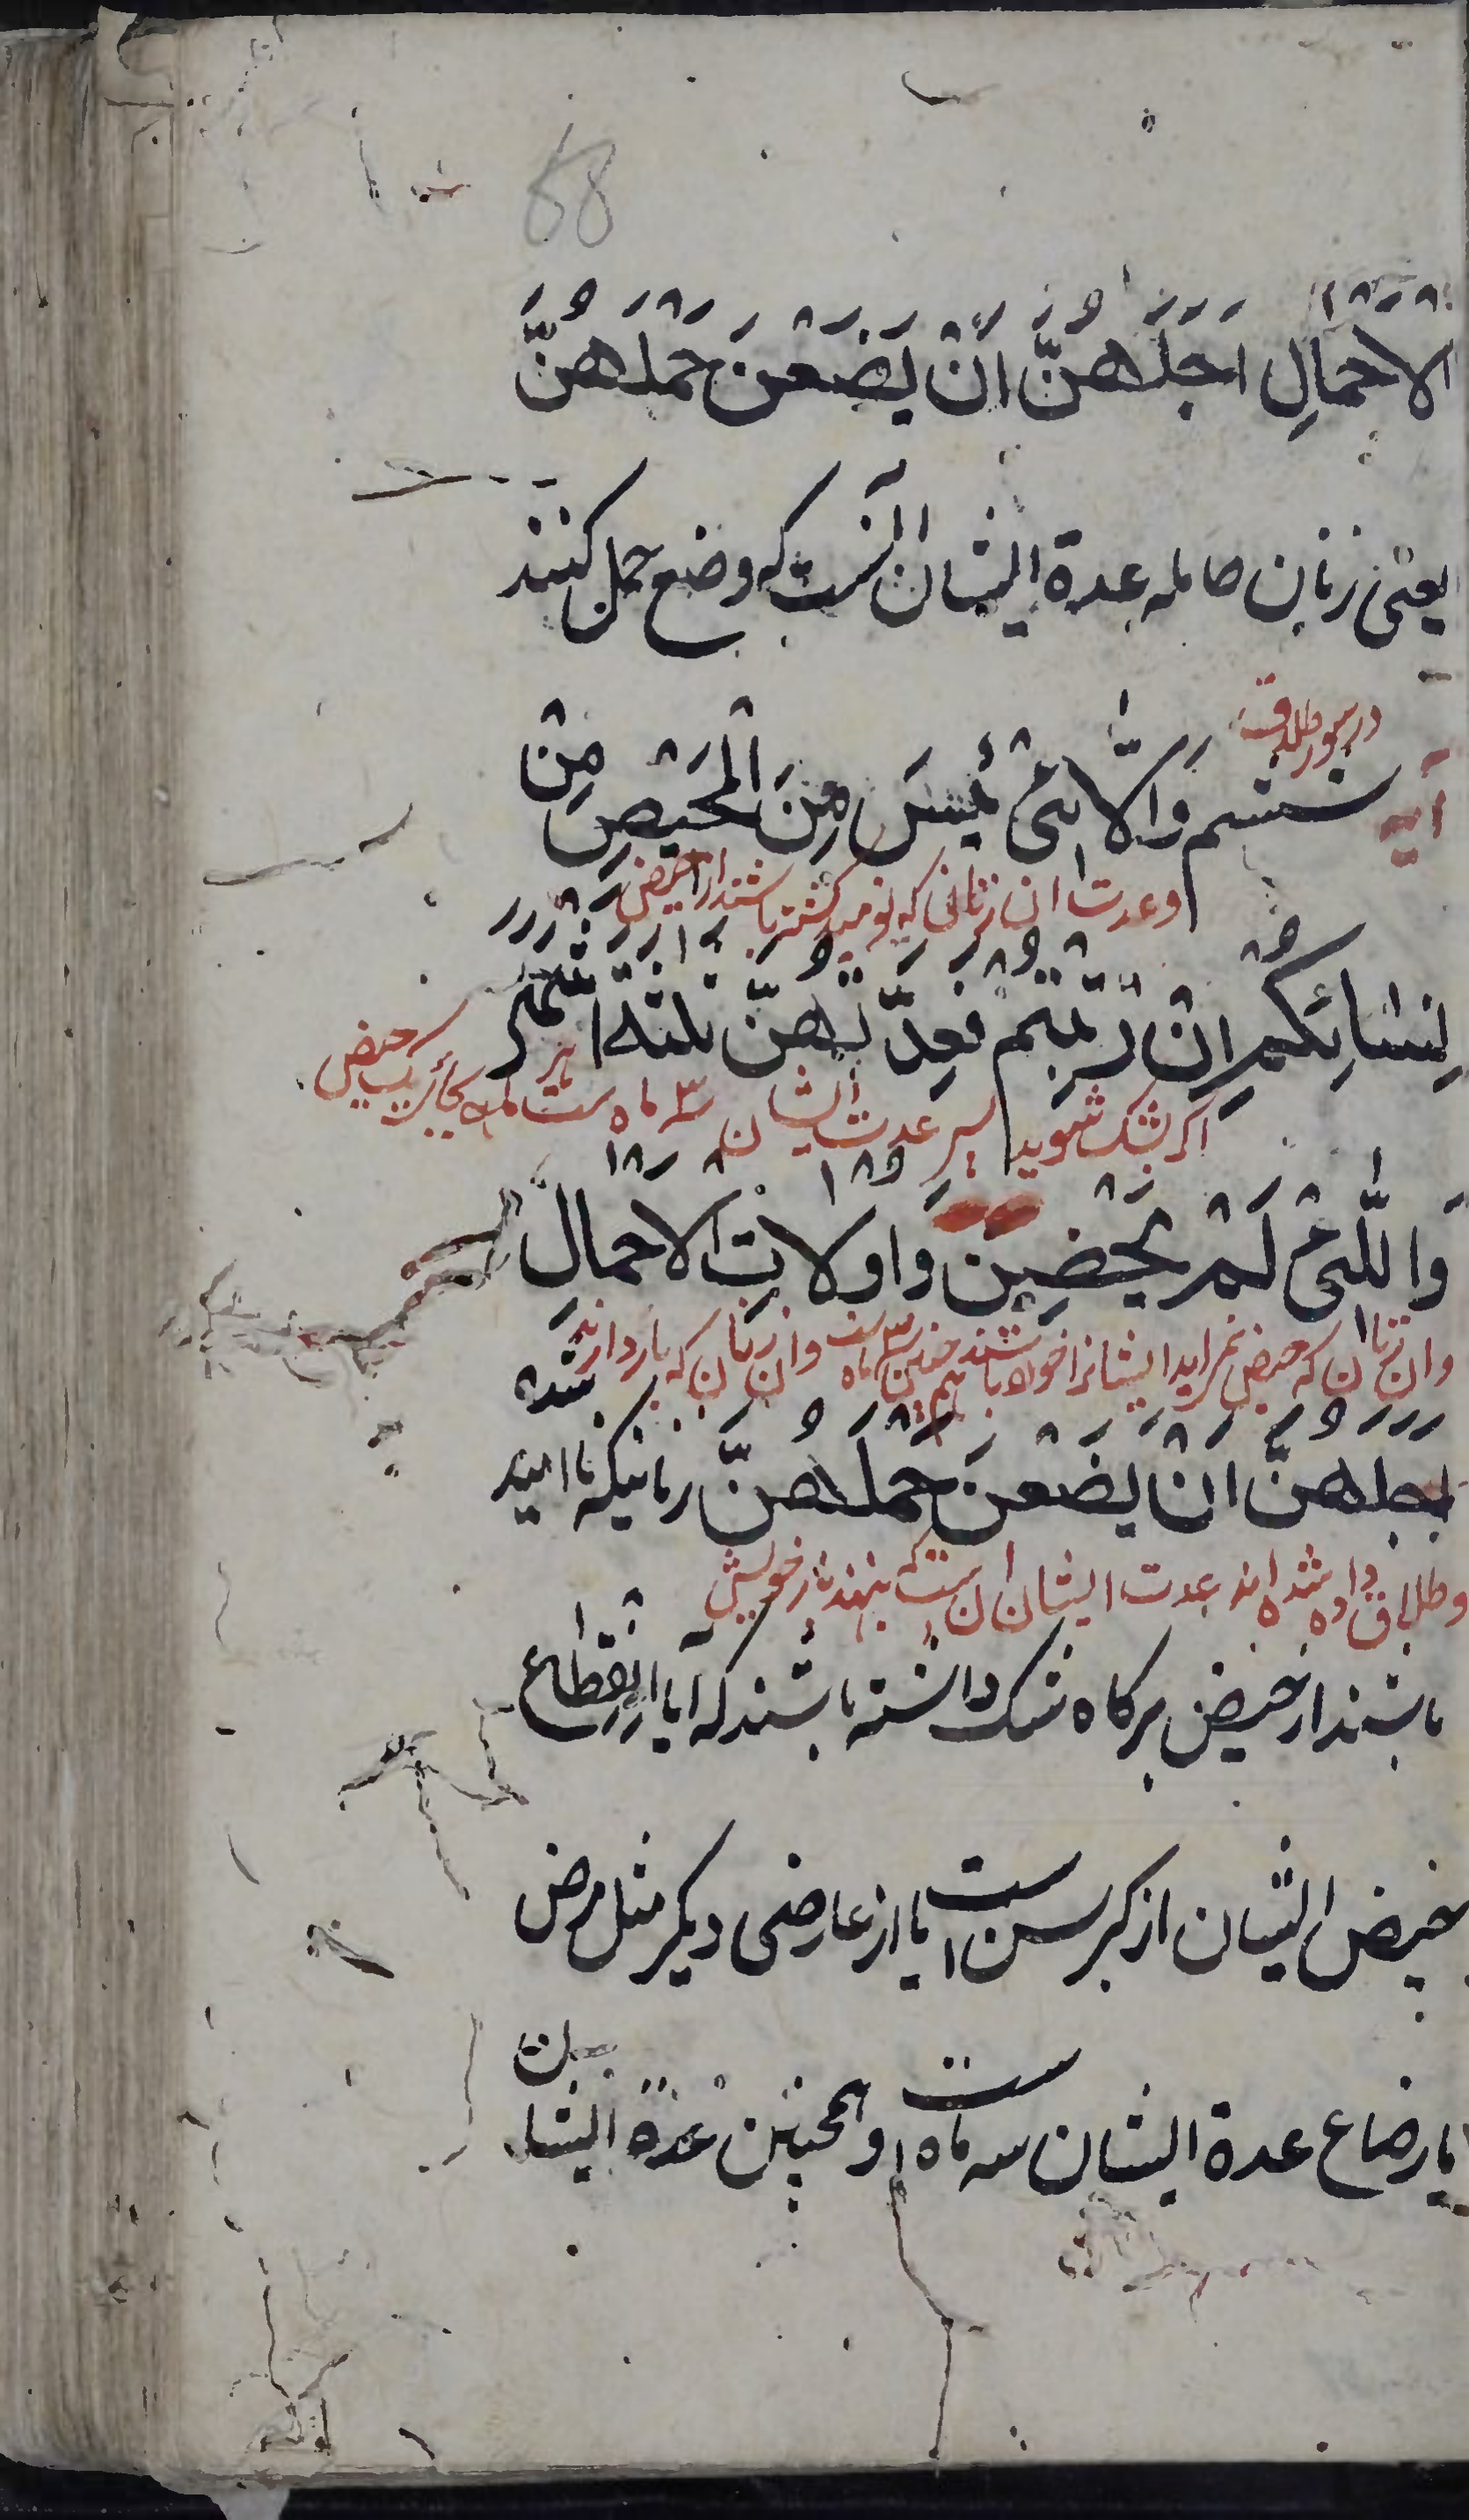 68
الاحمالِ اجلهنّ انْ یضعن حملهنّ
یعنی زنان حامله عدة ایشان آنست که وضع حمل کنند
در سوره طلاق
آیه ششم وَالّائی یَئِسنَ مِنَ الْمَحیضِ مِنْ
وعدت ان زنانی که نومید کشته باشند از حیض
نِسٰائِکُم اِنْ رْتَبْتم فعِدّتهنّ ثلثة اشهر
اکر بشک شوید پس عدت ایشان ۳ ماه ست
وَاللّٰئی لَمْ یَحِضْنَ وَاولاتُ الاحمالِ
وان زنان که حیض نمی اید ایشانرا خود باشند همچنین ۳ ماه ست وان زنان که باردارند
اجلهنّ انْ یضعن حملهنّ زنانیکه ناامید شده
وطلاق داده شده اند عدت ایشان ان ست که بنهند بار خویش
باشند از حیض هرکاه شک داشته باشند که آیا انقطاع
حیض ایشان از کبر سن است یا از عارضی دیکر مثل مرض
یا رضاع عدة ایشان سه ماه است وهمچنین عدة ایشان